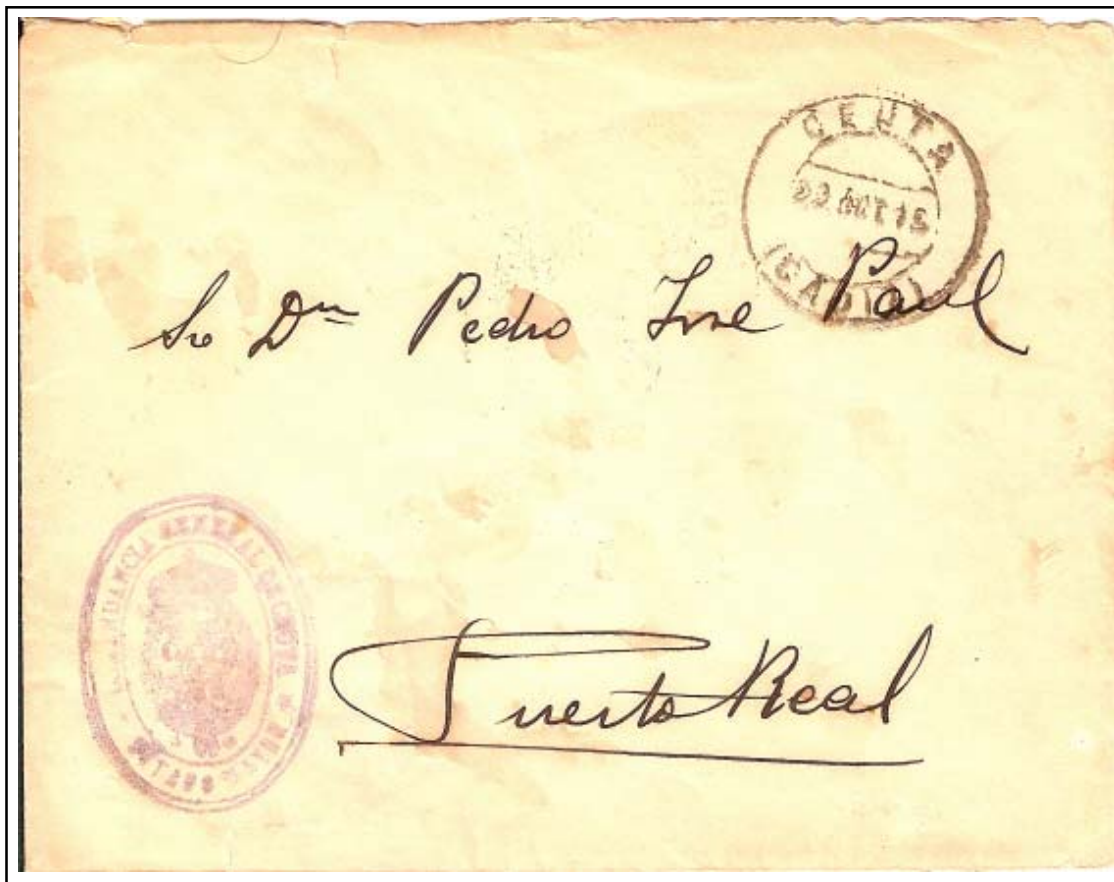 CEUTA
22 OCT 15
(CADIZ)
Sr Dn Pedro Jose Paul
COMANDANCIA GENERAL DE CEUTA
ESTADO MAYOR
Puerto Real